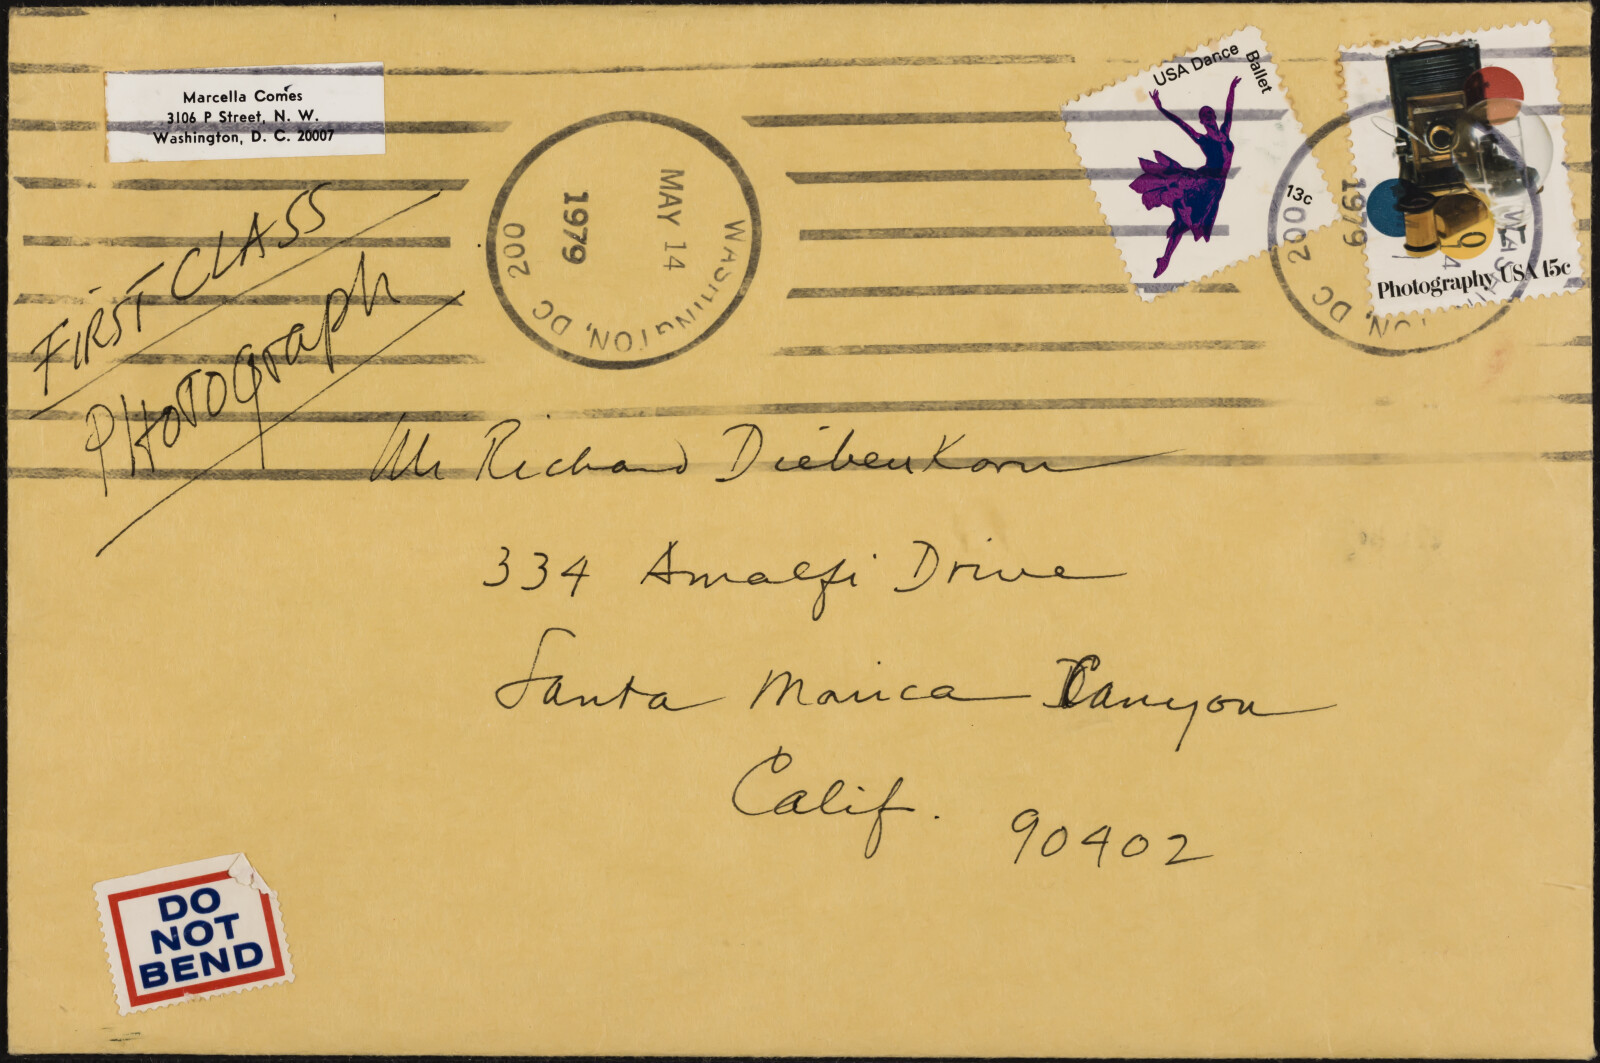 Marcella Comes
3106 P Street, N. W.
Washington, D. C. 20007
FIRST CLASS
PHOTOGraph
WASHINGTON, DC 200
MAY 14
1979
USA Dance
Ballet
13c
WASHINGTON, DC 200
MAY 14
1979
Photography USA 15c
Mr Richard Diebenkorn
334 Amalfi Drive
Santa Monica Canyon
Calif. 90402
DO
NOT
BEND